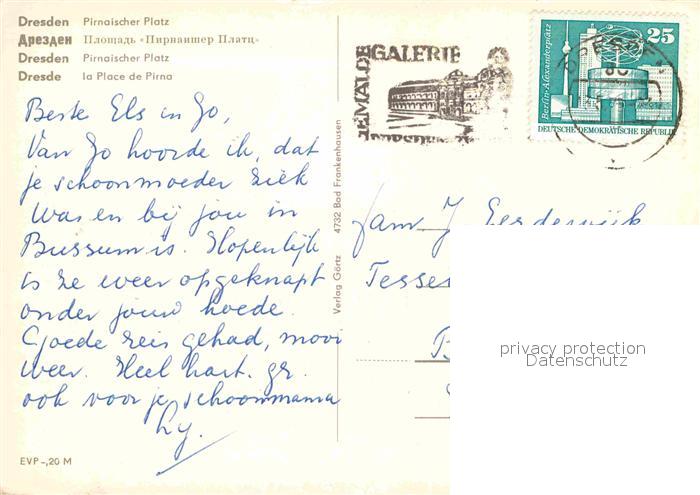 Dresden Pirnaischer Platz
Дрезден Площадь «Пирнаишер Платц»
Dresden Pirnaischer Platz
Dresde la Place de Pirna
Beste Els en Jo,
Van Jo hoorde ik, dat
je schoonmoeder ziek
was en bij jou in
Bussum is. Hopenlijk
is ze weer opgeknapt
onder jouw hoede.
Goede reis gehad, mooi
weer. Heel hart. gr.
ook voor je schoonmama
EVP -,20 M
Verlag Görtz 4732 Bad Frankenhausen
GEMÄLDEGALERIE
DRESDEN
Berlin-Alexanderplatz
25
DEUTSCHE DEMOKRATISCHE REPUBLIK
Fam. J. Eerdewijk
Tesse
B
privacy protection
Datenschutz